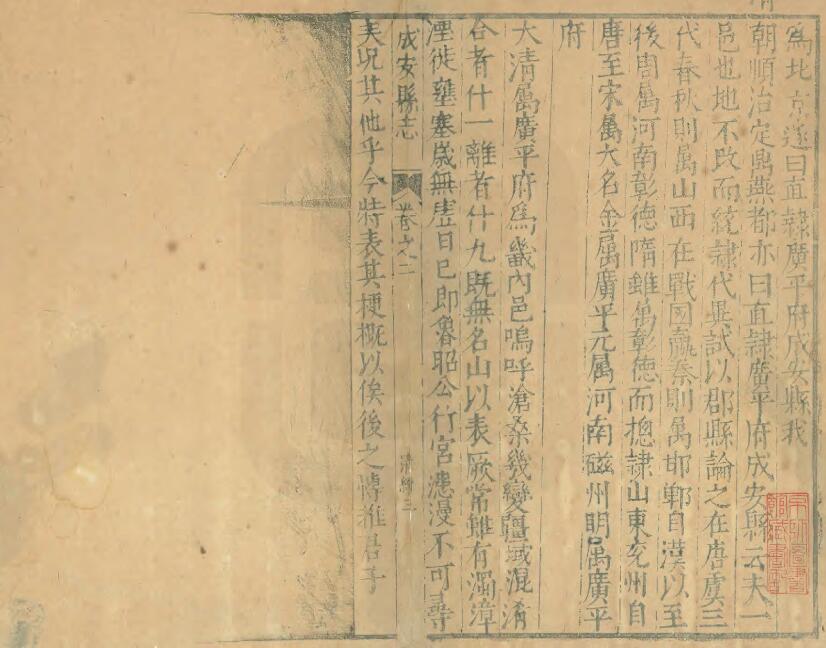 為北京遂曰直隸廣平府成安縣我
朝順治定鼎燕都亦曰直隸廣平府成安縣云夫一
邑也地不改而統隸代異試以郡縣論之在唐虞三
代春秋則屬山西在戰國嬴秦則屬邯鄲自漢以至
後周屬河南彰德隋雖屬彰德而摠隸山東兖州自
唐至宋屬大名金屬廣平元属河南磁州明屬廣平
府
大清屬廣平府為畿內邑嗚呼滄桑幾變疆域混淆
合者什一離者什九既無名山以表厥常雖有濁漳
湮徙壅塞歲無虛日已即魯昭公行宮漶漫不可尋
成安縣志 卷之二 三
矣况其他乎今特表其梗概以俟後之博雅君子